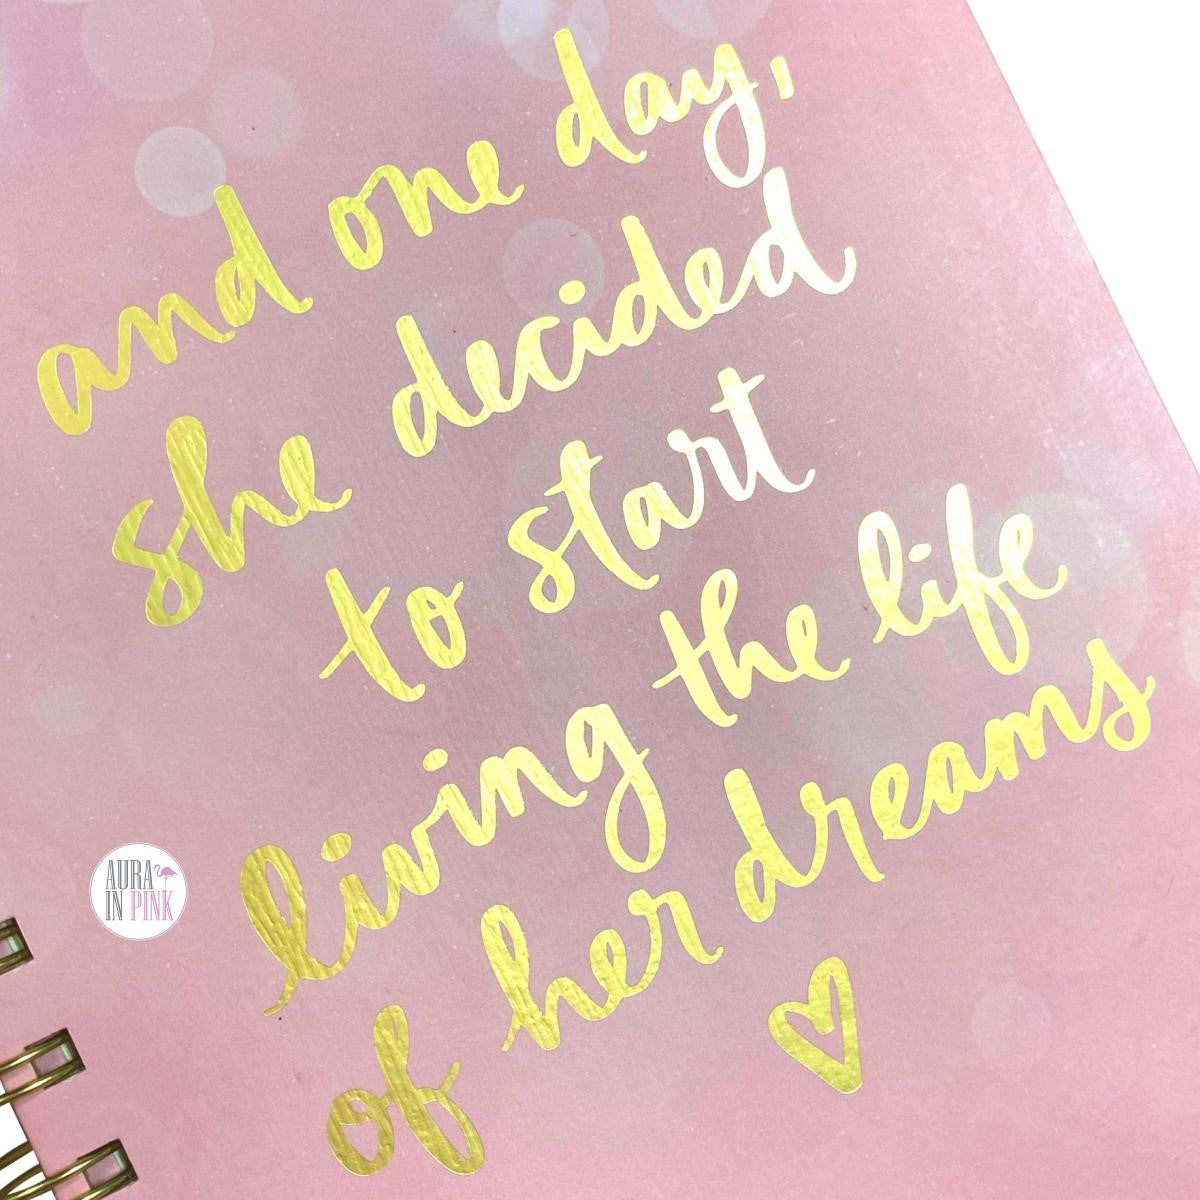 and one day,
she decided
to start
living the life
of her dreams
AURA
IN PINK